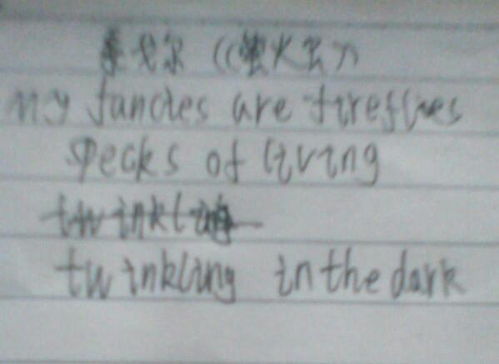 泰戈尔《萤火虫》
my fancies are fireflies
specks of living
twinkling
twinkling in the dark